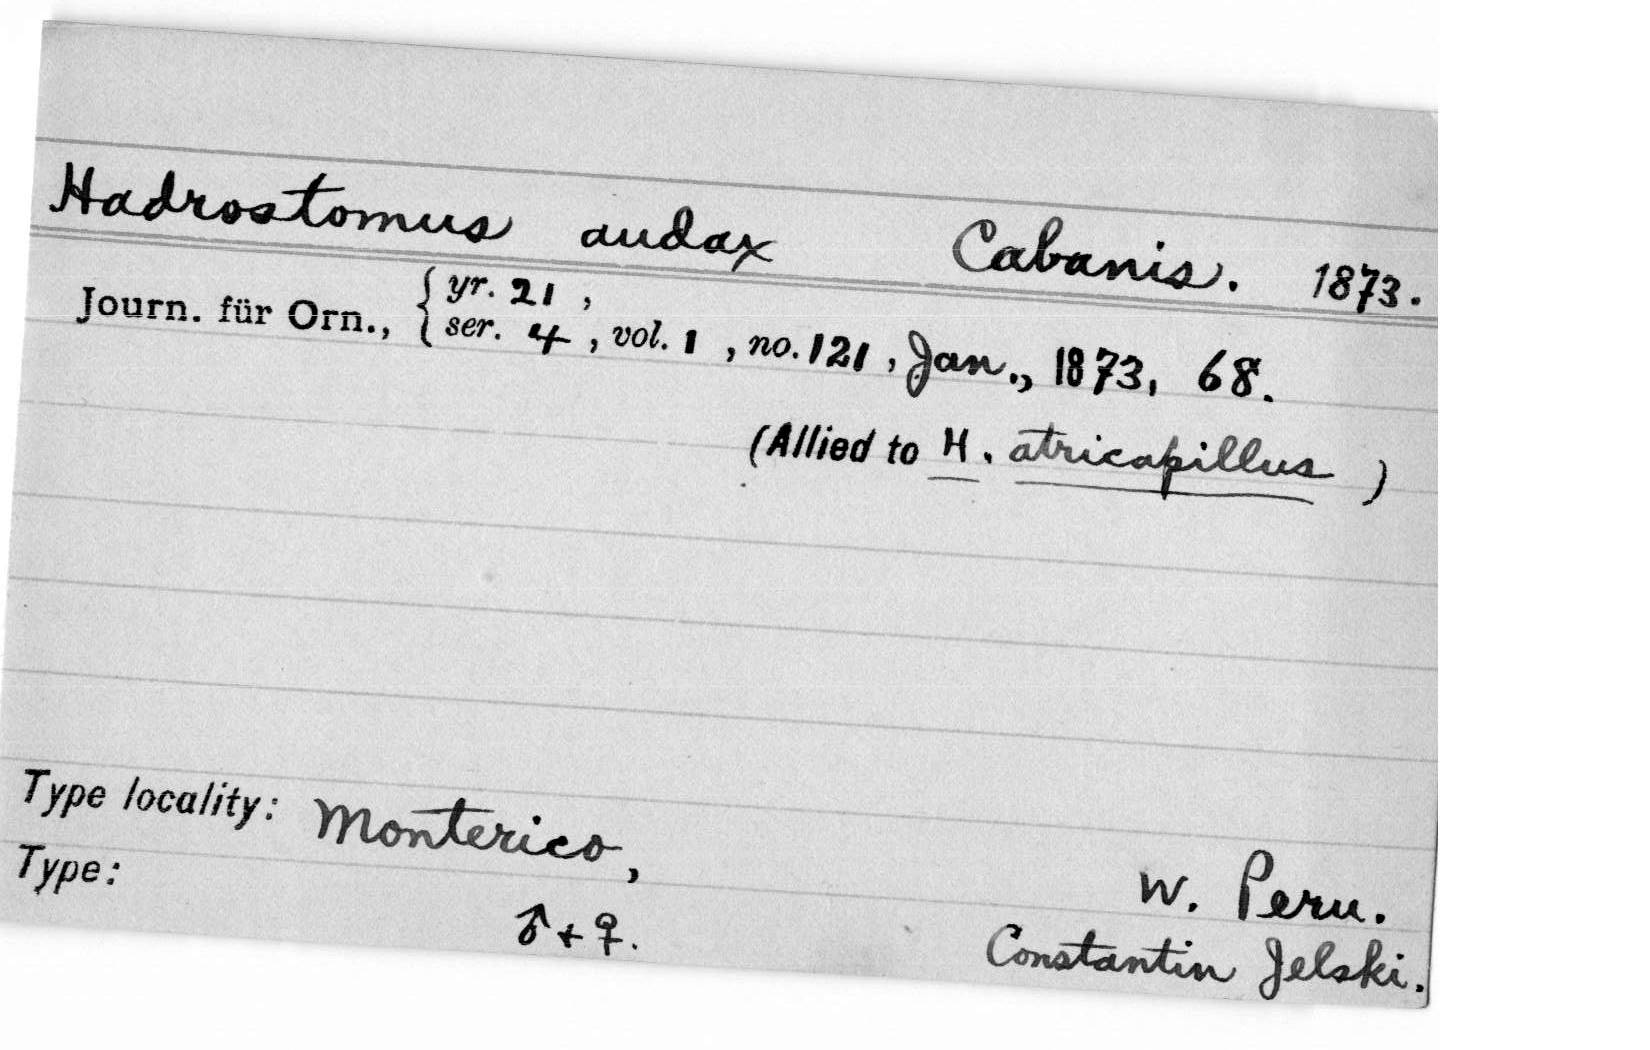 Hadrostomus audax Cabanis. 1873.
Journ. für Orn., { yr. 21 ,
ser. 4 , vol. 1 , no. 121 , Jan., 1873, 68.
(Allied to H. atricapillus )
Type locality: Monterico,
W. Peru.
Type: ♂ + ♀. Constantin Jelski.